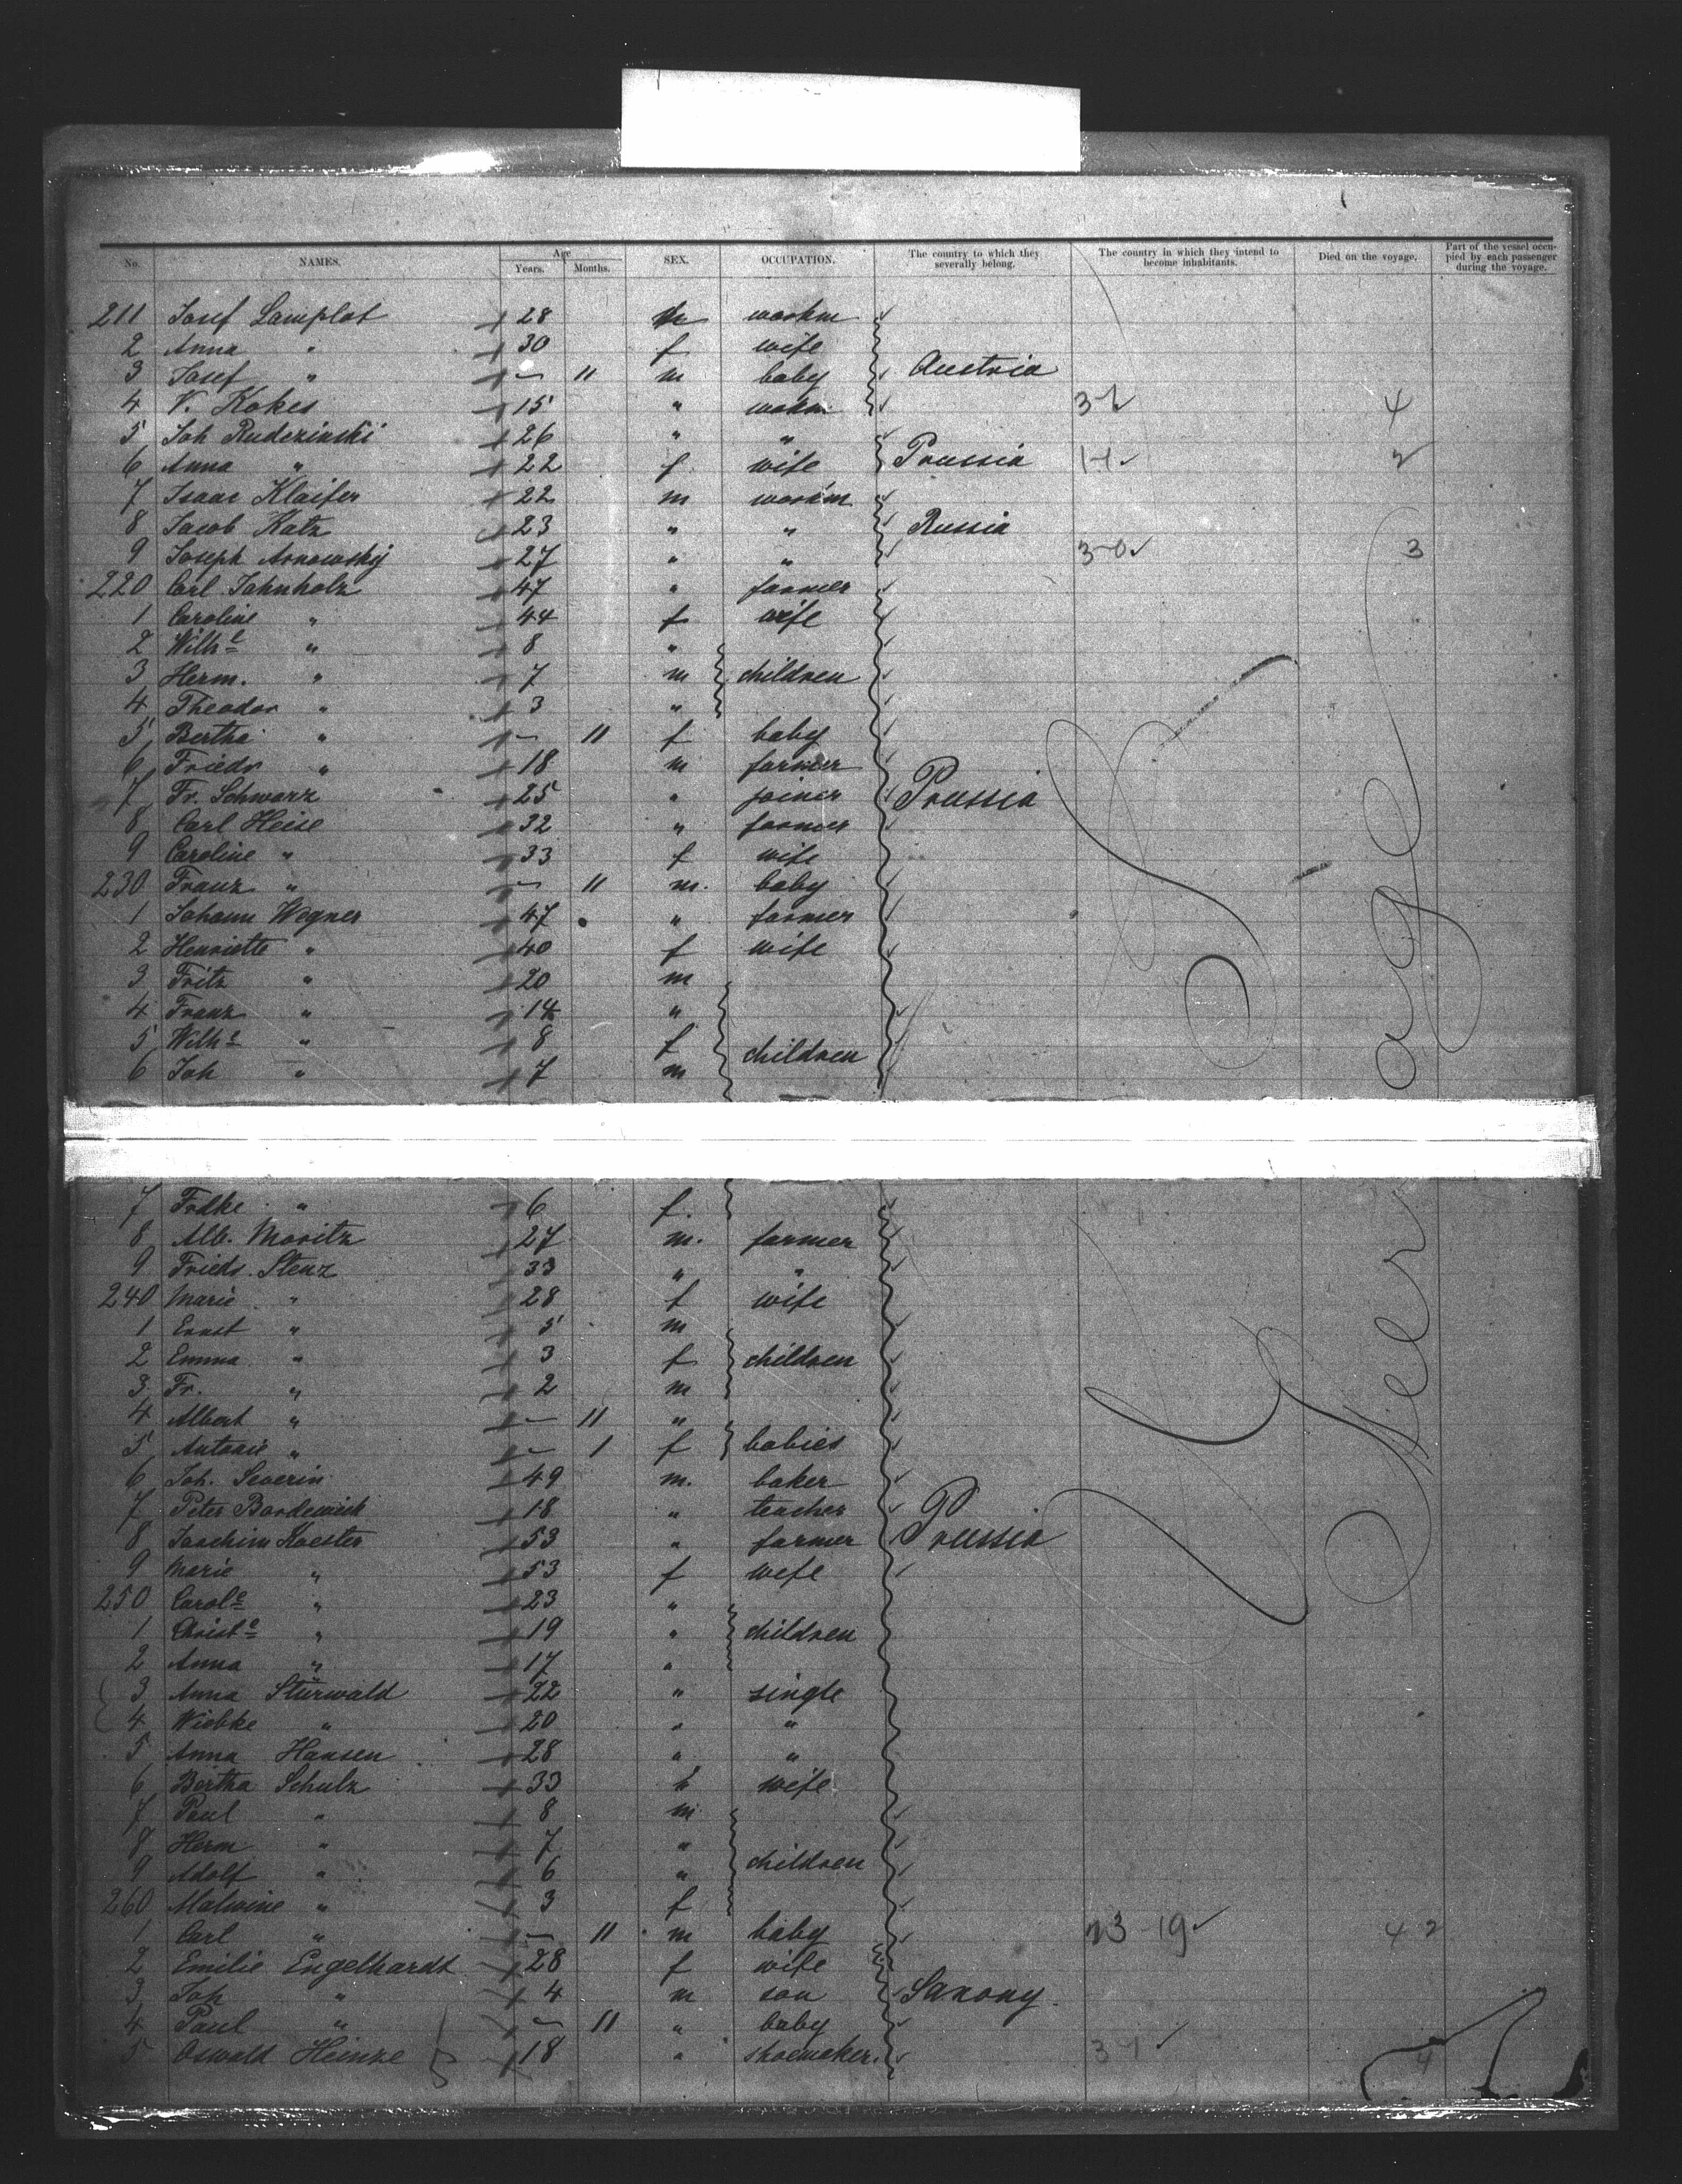 No. NAMES. Age Years. Months. SEX. OCCUPATION. The country to which they severally belong. The country in which they intend to become inhabitants. Died on the voyage. Part of the vessel occupied by each passenger during the voyage.
211 Josef Lamplot 28 m workm
2 Anna " 30 f wife
3 Josef " — 11 m baby Austria
4 V. Kokes 15 " workm. 3-1 4
5 Joh Rudezinski 26 " "
6 Anna " 22 f wife Prussia 1-1 2
7 Isaac Klaifer 22 m workm
8 Jacob Katz 23 " " Russia
9 Joseph Arnowskÿ 27 " " 3-0 3
220 Carl Jahnholz 47 " farmer
1 Caroline " 44 f wife
2 Wilhe " 8 "
3 Herm. " 7 m children
4 Theodor " 3 "
5 Bertha " — 11 f baby
6 Friedr " 18 m farmer
7 Fr. Schwarz 25 " joiner Prussia
8 Carl Heise 32 " farmer
9 Caroline " 33 f wife
230 Franz " — 11 m. baby
1 Johann Wegner 47 " farmer
2 Henriette " 40 f wife
3 Fritz " 20 m
4 Franz " 14 "
5 Wilhe " 8 f children
6 Joh " 7 m
7 Frdke " 6 f.
8 Alb. Moritz 27 m. farmer
9 Friedr. Stenz 33 " "
240 Marie " 28 f wife
1 Ernst " 5 m
2 Emma " 3 f children
3 Fr. " 2 m
4 Albert " — 11 "
5 Antonie " — 1 f babies
6 Joh. Severin 49 m. baker
7 Peter Bordewick 18 " teacher
8 Joachim Koester 53 " farmer Prussia
9 Marie " 53 f wife
250 Carole " 23 "
1 Christe " 19 " children
2 Anna " 17 "
3 Anna Stürwald 22 " single
4 Wiebke " 20 " "
5 Anna Hansen 28 " "
6 Bertha Schulz 33 f wife
7 Paul " 8 m
8 Herm " 7 "
9 Adolf " 6 " children
260 Malwine " 3 f
1 Carl " — 11 m baby 23-19 42
2 Emilie Engelhardt 28 f wife
3 Joh " 4 m son Saxony.
4 Paul " — 11 " baby
5 Oswald Heinze 18 " shoemaker. 3-1 4
Steerage